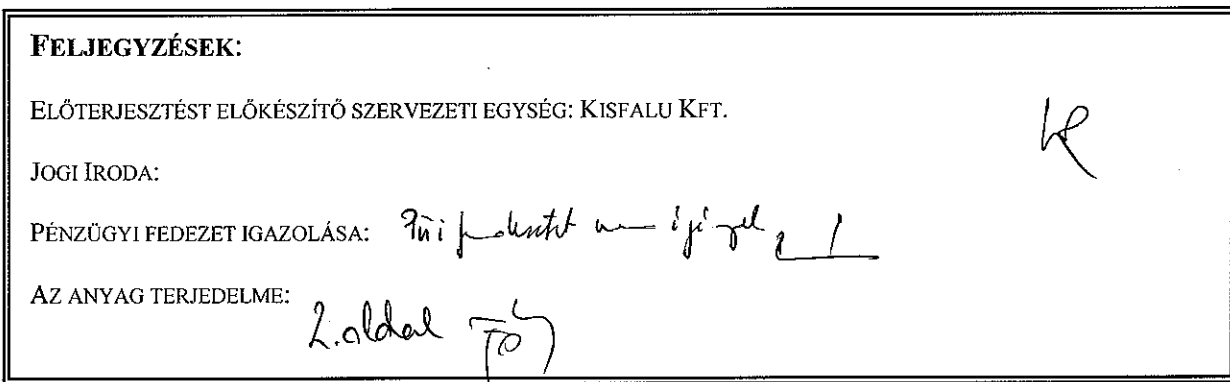 FELJEGYZÉSEK:
ELŐTERJESZTÉST ELŐKÉSZÍTŐ SZERVEZETI EGYSÉG: KISFALU KFT.
JOGI IRODA:
PÉNZÜGYI FEDEZET IGAZOLÁSA: nem igényel
AZ ANYAG TERJEDELME: 2. oldal